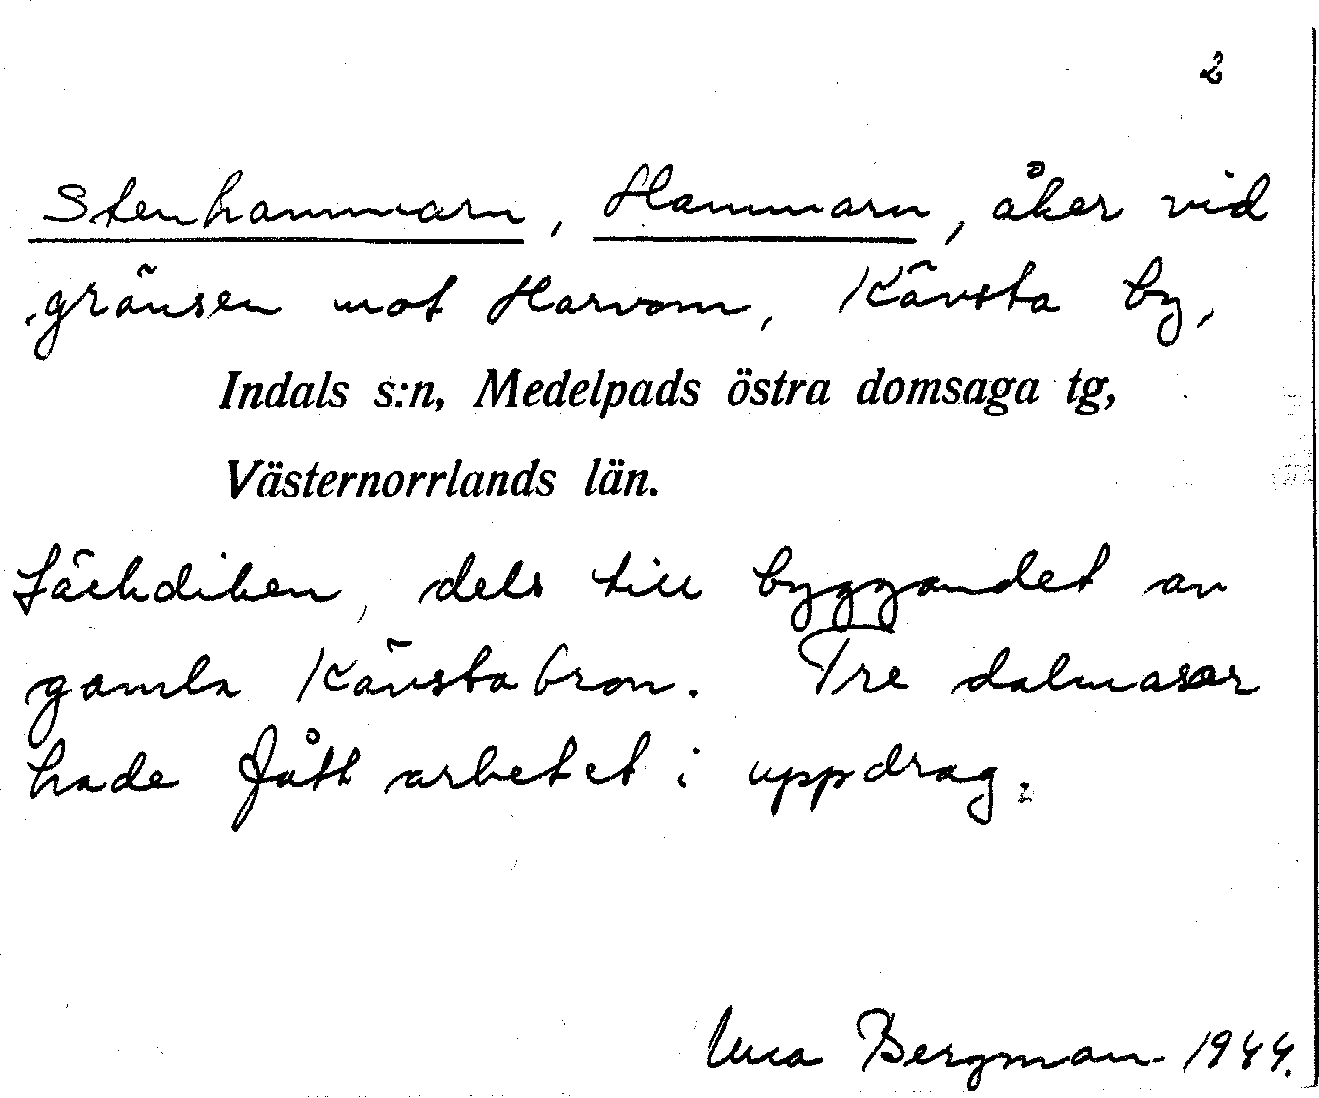 2
Stenhammarn, Hammarn, åker vid
gränsen mot Harvom, Kävsta by,
Indals s:n, Medelpads östra domsaga tg,
Västernorrlands län.
Täckdiken, dels till byggandet av
gamla Kävstabron. Tre dalmasar
hade fått arbetet i uppdrag.
Bergman 1944.